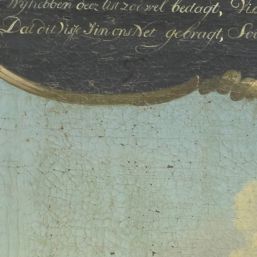 Wij hebben deez list zoo wel bedagt, Vis
Dat dit Visje in ons Net gebragt, Soo